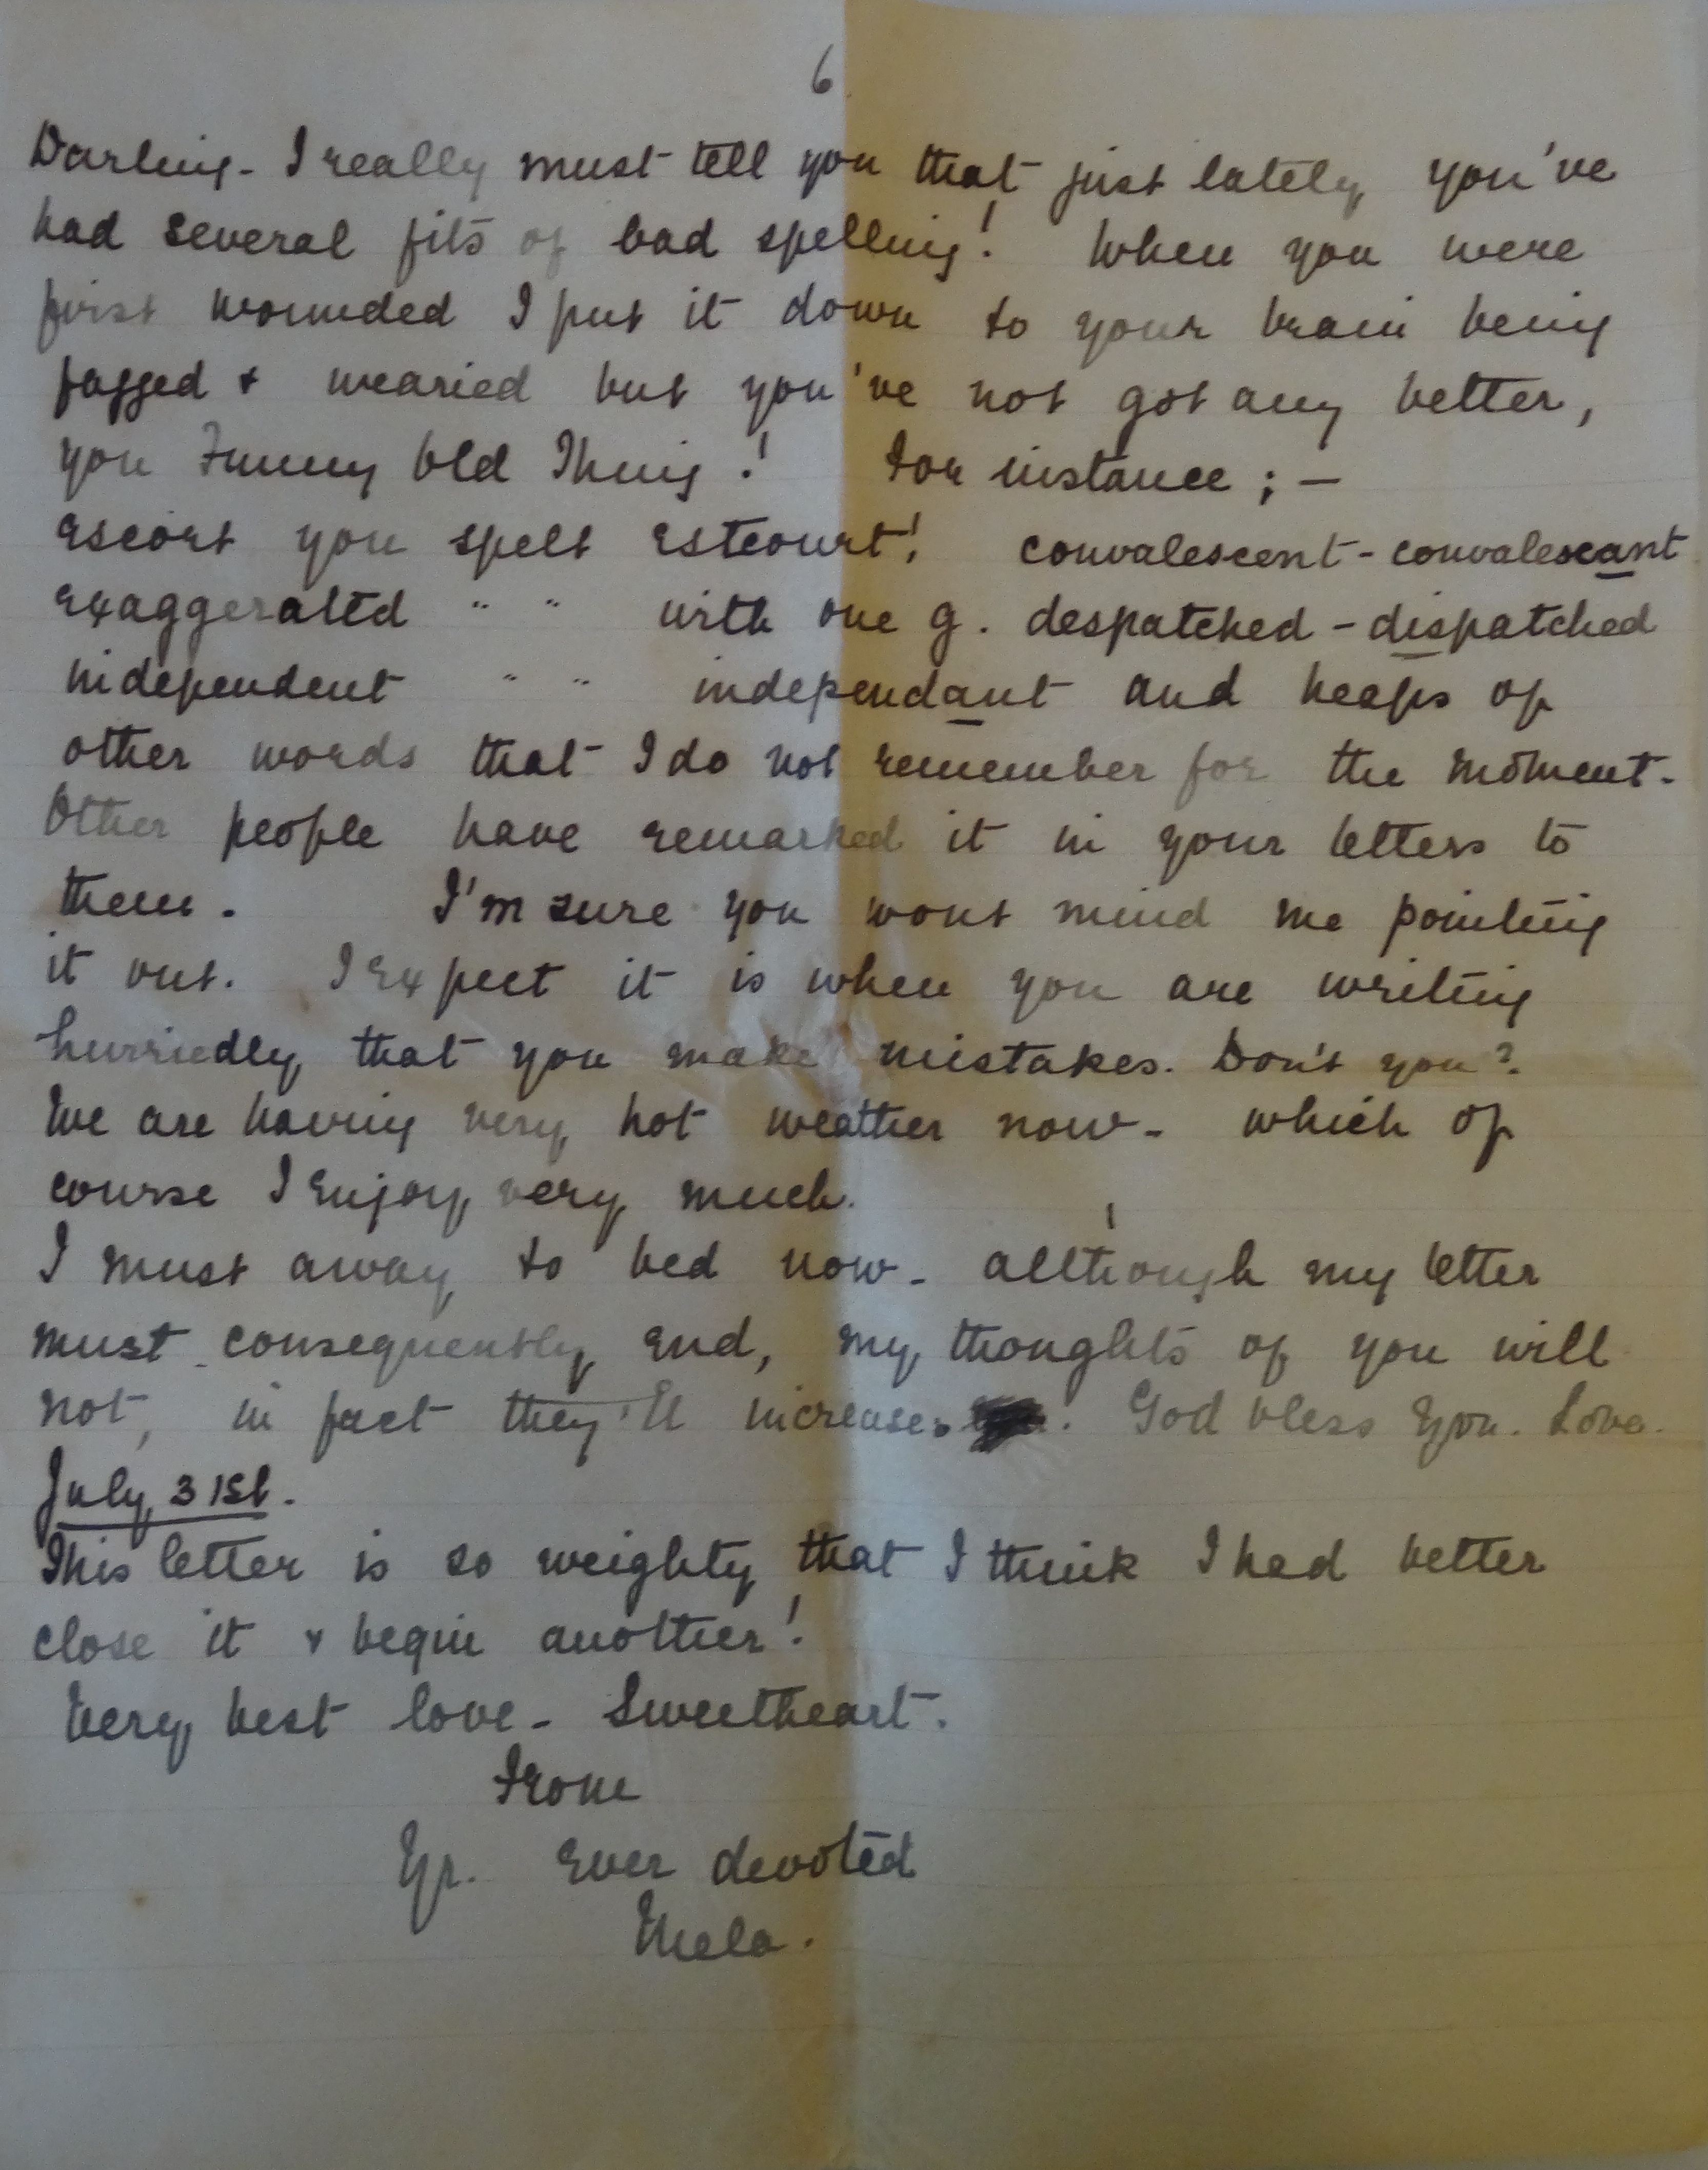 6
Darling - I really must tell you that just lately you've
had several fits of bad spelling! When you were
first wounded I put it down to your brain being
fagged & wearied but you've not got any better,
you Funny Old Thing! For instance ; —
escort you spelt estcourt! convalescent - convalescant
exaggerated " " with one g. despatched - dispatched
independent " " independant and heaps of
other words that I do not remember for the moment.
Other people have remarked it in your letters to
them. I'm sure you wont mind me pointing
it out. I expect it is when you are writing
hurriedly that you make mistakes. Don't you?
We are having very hot weather now - which of
course I enjoy very much.
I must away to bed now - allthough my letter
must consequently end, my thoughts of you will
not, in fact they'll increase. God bless you. Love.
July 31st.
This letter is so weighty that I think I had better
close it & begin another!
Very best love - Sweetheart.
From
Yr. ever devoted